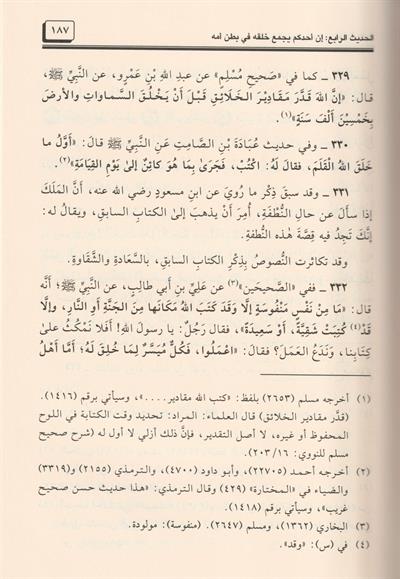 الحديث الرابع: إن أحدكم يجمع خلقه في بطن أمه
١٨٧
٣٢٩ ـ كما في «صَحيحِ مُسْلِمٍ» عن عبدِ اللهِ بْنِ عَمْرٍو، عن النَّبيِّ ﷺ،
قال: «إنَّ اللهَ قَدَّرَ مَقَاديرَ الخَلَائِقِ قَبْلَ أَنْ يَخْلُقَ السَّماواتِ والأرضَ
بِخَمْسِينَ أَلْفَ سَنَةٍ»(١).
٣٣٠ ـ وفي حديث عُبَادَةَ بْنِ الصَّامتِ عَنِ النَّبيِّ ﷺ قالَ: «أَوَّلُ مَا
خَلَقَ اللهُ القَلَمَ، فقالَ لَهُ: اكْتُبْ، فَجَرَىٰ بِمَا هوَ كائِنٌ إلىٰ يَوْمِ القِيَامَةِ»(٢).
٣٣١ ـ وقد سبقَ ذِكْر ما رُويَ عن ابنِ مسعودٍ رضي الله عنه، أنَّ المَلَكَ
إذا سألَ عن حالِ النُّطْفَةِ، أُمِرَ أنْ يذهبَ إلى الكتابِ السابقِ، ويقالُ له:
إنَّكَ تَجِدُ فيه قِصَّةَ هذه النُّطفةِ.
وقد تكاثرت النُّصوصُ بِذِكْرِ الكتابِ السابقِ، بالسَّعادةِ والشَّقاوةِ.
٣٣٢ ـ ففي «الصَّحيحَينِ»(٣) عن عَلِيِّ بْنِ أبي طالبٍ، عن النَّبيِّ ﷺ؛ أنَّه
قال: «مَا مِنْ نَفْسٍ مَنْفُوسَةٍ إلَّا وَقَدْ كَتَبَ اللهُ مَكَانَها مِنَ الجَنَّةِ أوِ النَّارِ، وإلَّا
قَدْ(٤) كُتِبَتْ شَقِيَّةً، أَوْ سَعِيدَةً»، فقال رَجُلٌ: يا رسولَ اللهِ! أفَلا نَمْكُثُ علىٰ
كِتَابِنا، وَنَدَعُ العَمَلَ؟ فقالَ: «اعْمَلُوا، فَكُلٌّ مُيَسَّرٌ لِمَا خُلِقَ لَهُ؛ أمَّا أَهْلُ
(١) أخرجه مسلم (٢٦٥٣) بلفظ: «كتب الله مقادير....»، وسيأتي برقم (١٤١٦).
(قدَّر مقادير الخلائق) قال العلماء: المراد: تحديد وقت الكتابة في اللوح
المحفوظ أو غيره، لا أصل التقدير، فإنَّ ذلك أزلي لا أول له (شرح صحيح
مسلم للنووي: ٢٠٣/١٦).
(٢) أخرجه أحمد (٢٢٧٠٥)، وأبو داود (٤٧٠٠)، والترمذي (٢١٥٥) و(٣٣١٩)
والضياء في «المختارة» (٤٢٩) وقال الترمذي: «هذا حديث حسن صحيح
غريب»، وسيأتي برقم (١٤١٨).
(٣) البخاري (١٣٦٢)، ومسلم (٢٦٤٧). (منفوسة): مولودة.
(٤) في (س): «وقد».